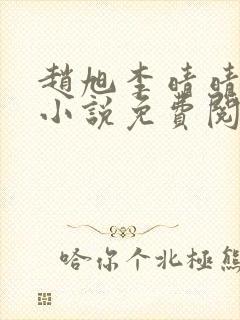 趙旭李晴晴
小說免費閱
哈你个北極熊